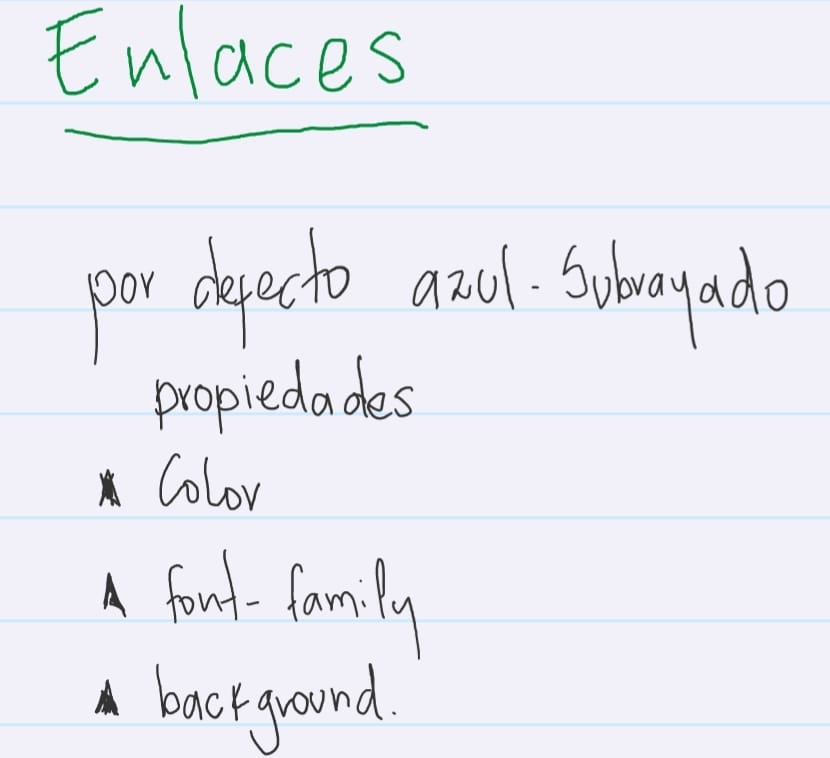 Enlaces
por defecto azul - Subrayado
propiedades
Color
font-family
background.